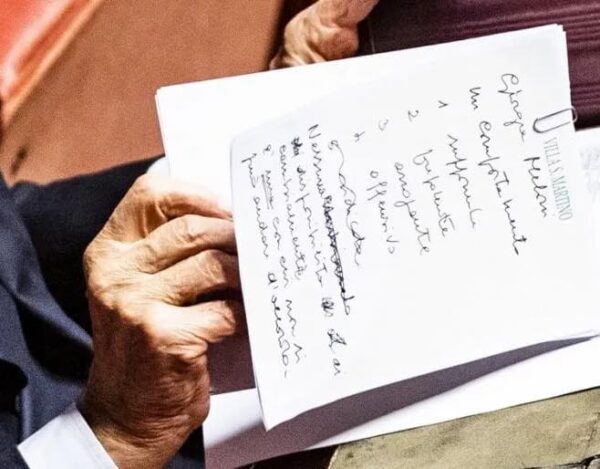 VILLA S. MARTINO
Giorgia Meloni
Un comportamento
1 supponente
2 prepotente
3 arrogante
4 offensivo
Nessuna
disponibilità ai
cambiamenti
è una con cui non si
può andar d'accordo